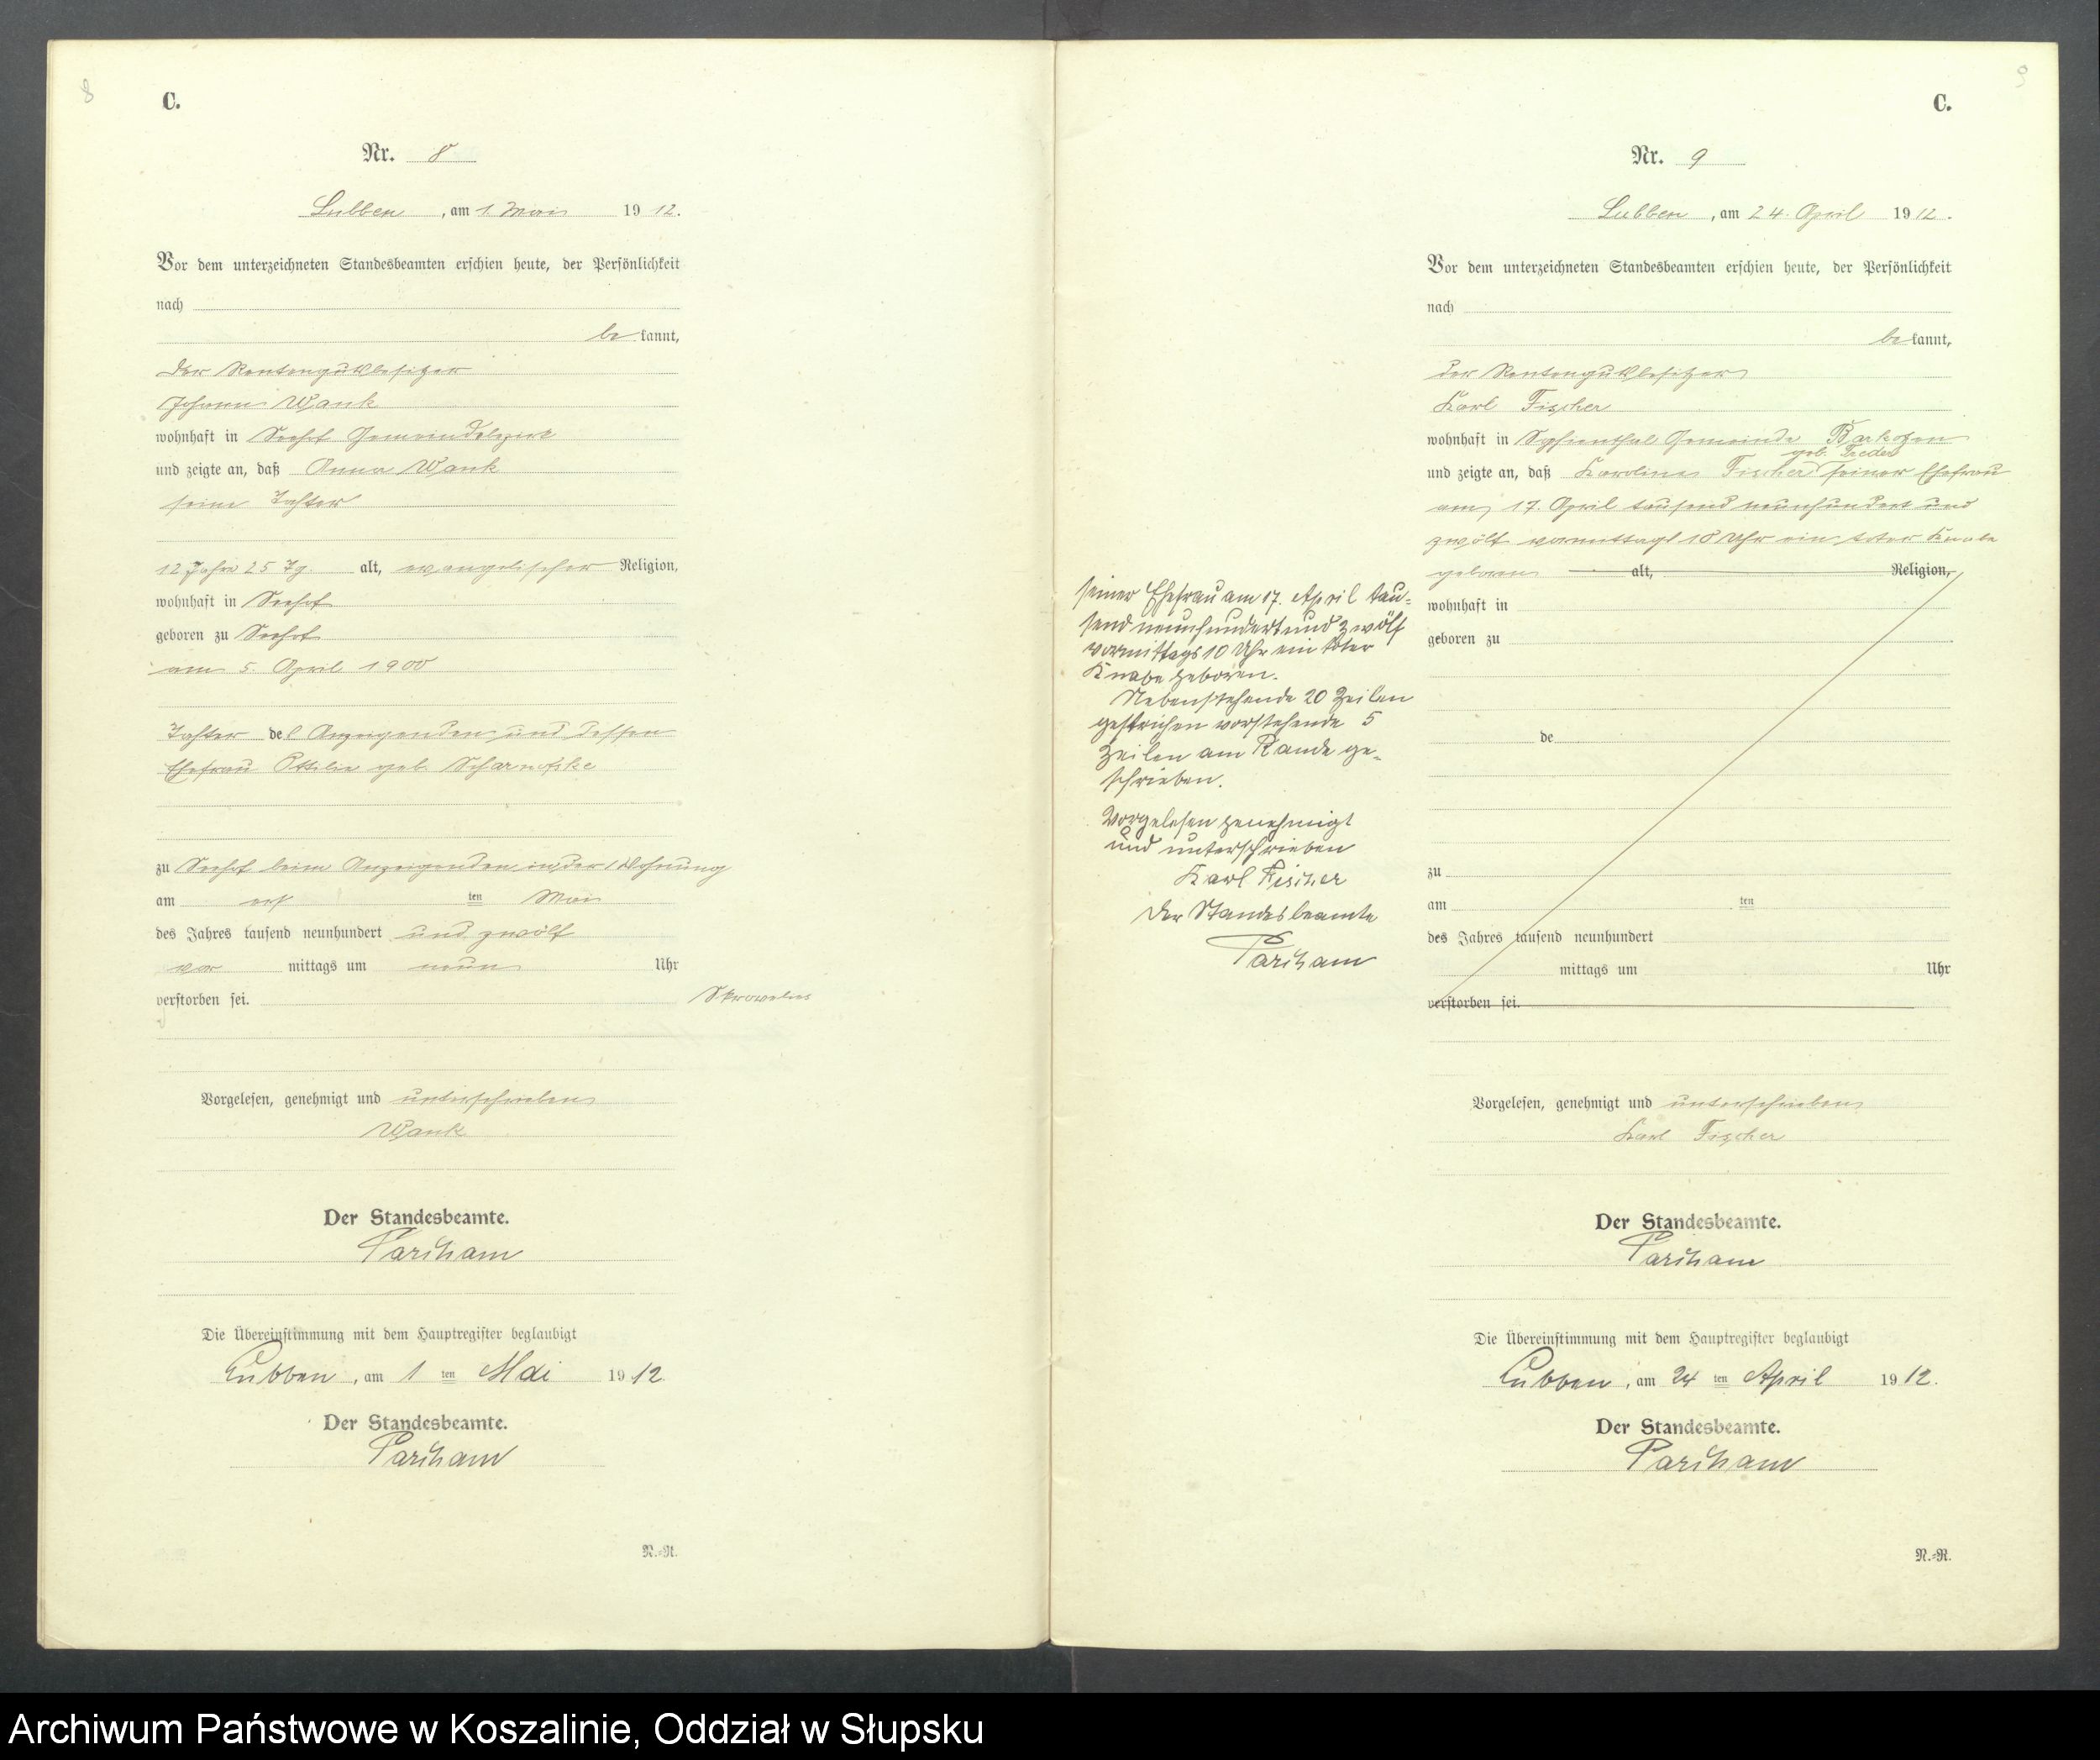 8
C.
Nr. 8
Lubben, am 1. Mai 1912.
Vor dem unterzeichneten Standesbeamten erschien heute, der Persönlichkeit
nach
be kannt,
der Rentengutsbesitzer
Johann Wank
wohnhaft in Seehof Gemeindebezirk
und zeigte an, daß Anna Wank
seine Tochter
12 Jahre 25 Tg. alt, evangelischer Religion,
wohnhaft in Seehof
geboren zu Seehof
am 5. April 1900
Tochter des Anzeigenden und dessen
Ehefrau Ottilie geb.
zu Seehof beim Anzeigenden in der Wohnung
am ten Mai
des Jahres tausend neunhundert und zwölf
vor mittags um neun Uhr
verstorben sei.
Vorgelesen, genehmigt und unterschrieben
Wank
Der Standesbeamte.
Parcham
Die Übereinstimmung mit dem Hauptregister beglaubigt
Lubben, am 1 ten Mai 1912.
Der Standesbeamte.
Parcham
N.=R.
9
C.
Nr. 9
Lubben, am 24. April 1912.
Vor dem unterzeichneten Standesbeamten erschien heute, der Persönlichkeit
nach
be kannt,
der Rentengutsbesitzer
Karl Fischer
wohnhaft in Gemeinde
geb.
und zeigte an, daß Karoline Fischer seiner Ehefrau
am 17. April tausend neunhundert und
zwölf vormittags 10 Uhr ein toter Knabe
geboren alt, Religion,
wohnhaft in
geboren zu
de
zu
am ten
des Jahres tausend neunhundert
mittags um Uhr
verstorben sei.
seiner Ehefrau am 17. April tau=
send neunhundert und zwölf
vormittags 10 Uhr ein toter
Knabe geboren.
Nebenstehende 20 Zeilen
gestrichen vorstehende 5
Zeilen am Rande ge=
schrieben.
Vorgelesen genehmigt
und unterschrieben
Karl Fischer
Der Standesbeamte
Parcham
Vorgelesen, genehmigt und unterschrieben
Karl Fischer
Der Standesbeamte.
Parcham
Die Übereinstimmung mit dem Hauptregister beglaubigt
Lubben, am 24 ten April 1912.
Der Standesbeamte.
Parcham
N.=R.
Archiwum Państwowe w Koszalinie, Oddział w Słupsku